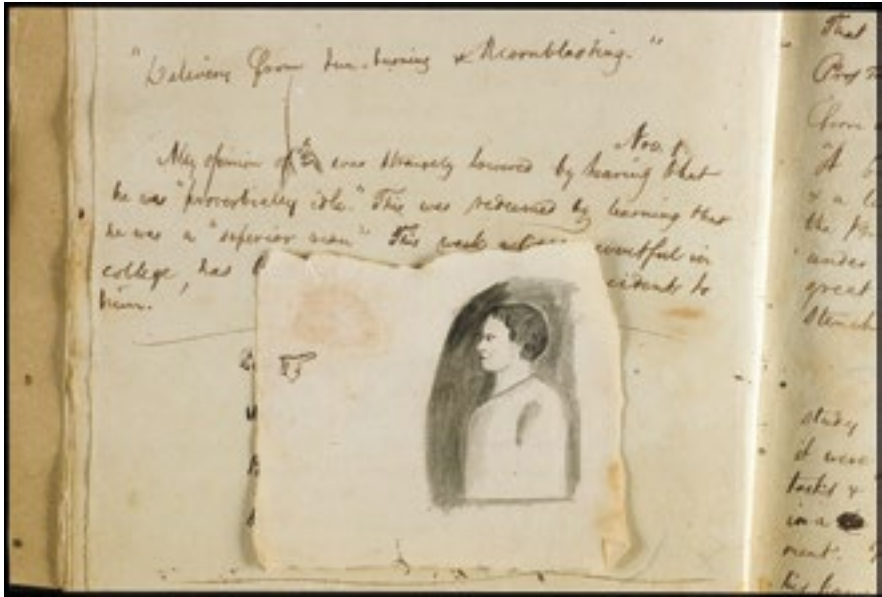 "Delivery from sun-burning & Moonblasting."
Nov. 1.
My opinion of was strangely lowered by hearing that
he was "proverbially idle." This was redeemed by learning that
he was a "superior man" This week eventful in
college, has cidents to
him.
That
Prof
"A
& a
the
under
great
stench
study
it were
tasks &
in a
ment.
his